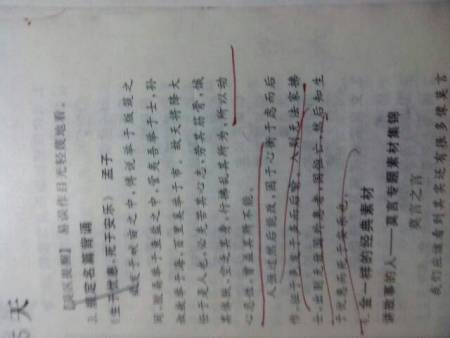 5 天
【误区提醒】 易误作目光轻蔑地看。
3. 规定名篇背诵
《生于忧患,死于安乐》 孟子
舜发于畎亩之中,傅说举于版筑之
间,胶鬲举于鱼盐之中,管夷吾举于士,孙
叔敖举于海,百里奚举于市。故天将降大
任于是人也,必先苦其心志,劳其筋骨,饿
其体肤,空乏其身,行拂乱其所为,所以动
心忍性,曾益其所不能。
人恒过然后能改,困于心衡于虑而后
作,征于色发于声而后喻。入则无法家拂
士,出则无敌国外患者,国恒亡。然后知生
于忧患而死于安乐也。
4. 金一样的经典素材
讲故事的人——莫言专题素材集锦
莫言之言
我们应该看到其实还有很多像莫言